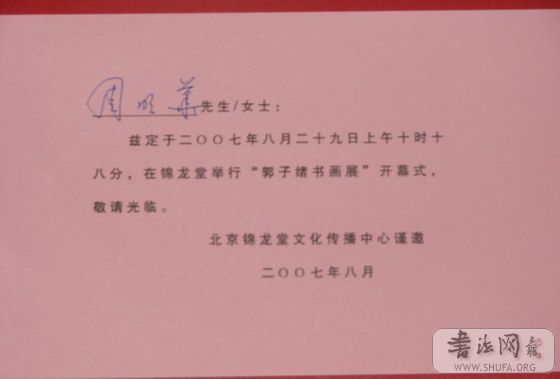 周明華先生/女士：
兹定于二〇〇七年八月二十九日上午十时十
八分，在锦龙堂举行“郭子绪书画展”开幕式，
敬请光临。
北京锦龙堂文化传播中心谨邀
二〇〇七年八月
书法网
WWW.SHUFA.ORG